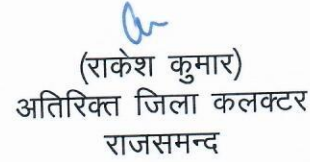 (राकेश कुमार)
अतिरिक्त जिला कलक्टर
राजसमन्द